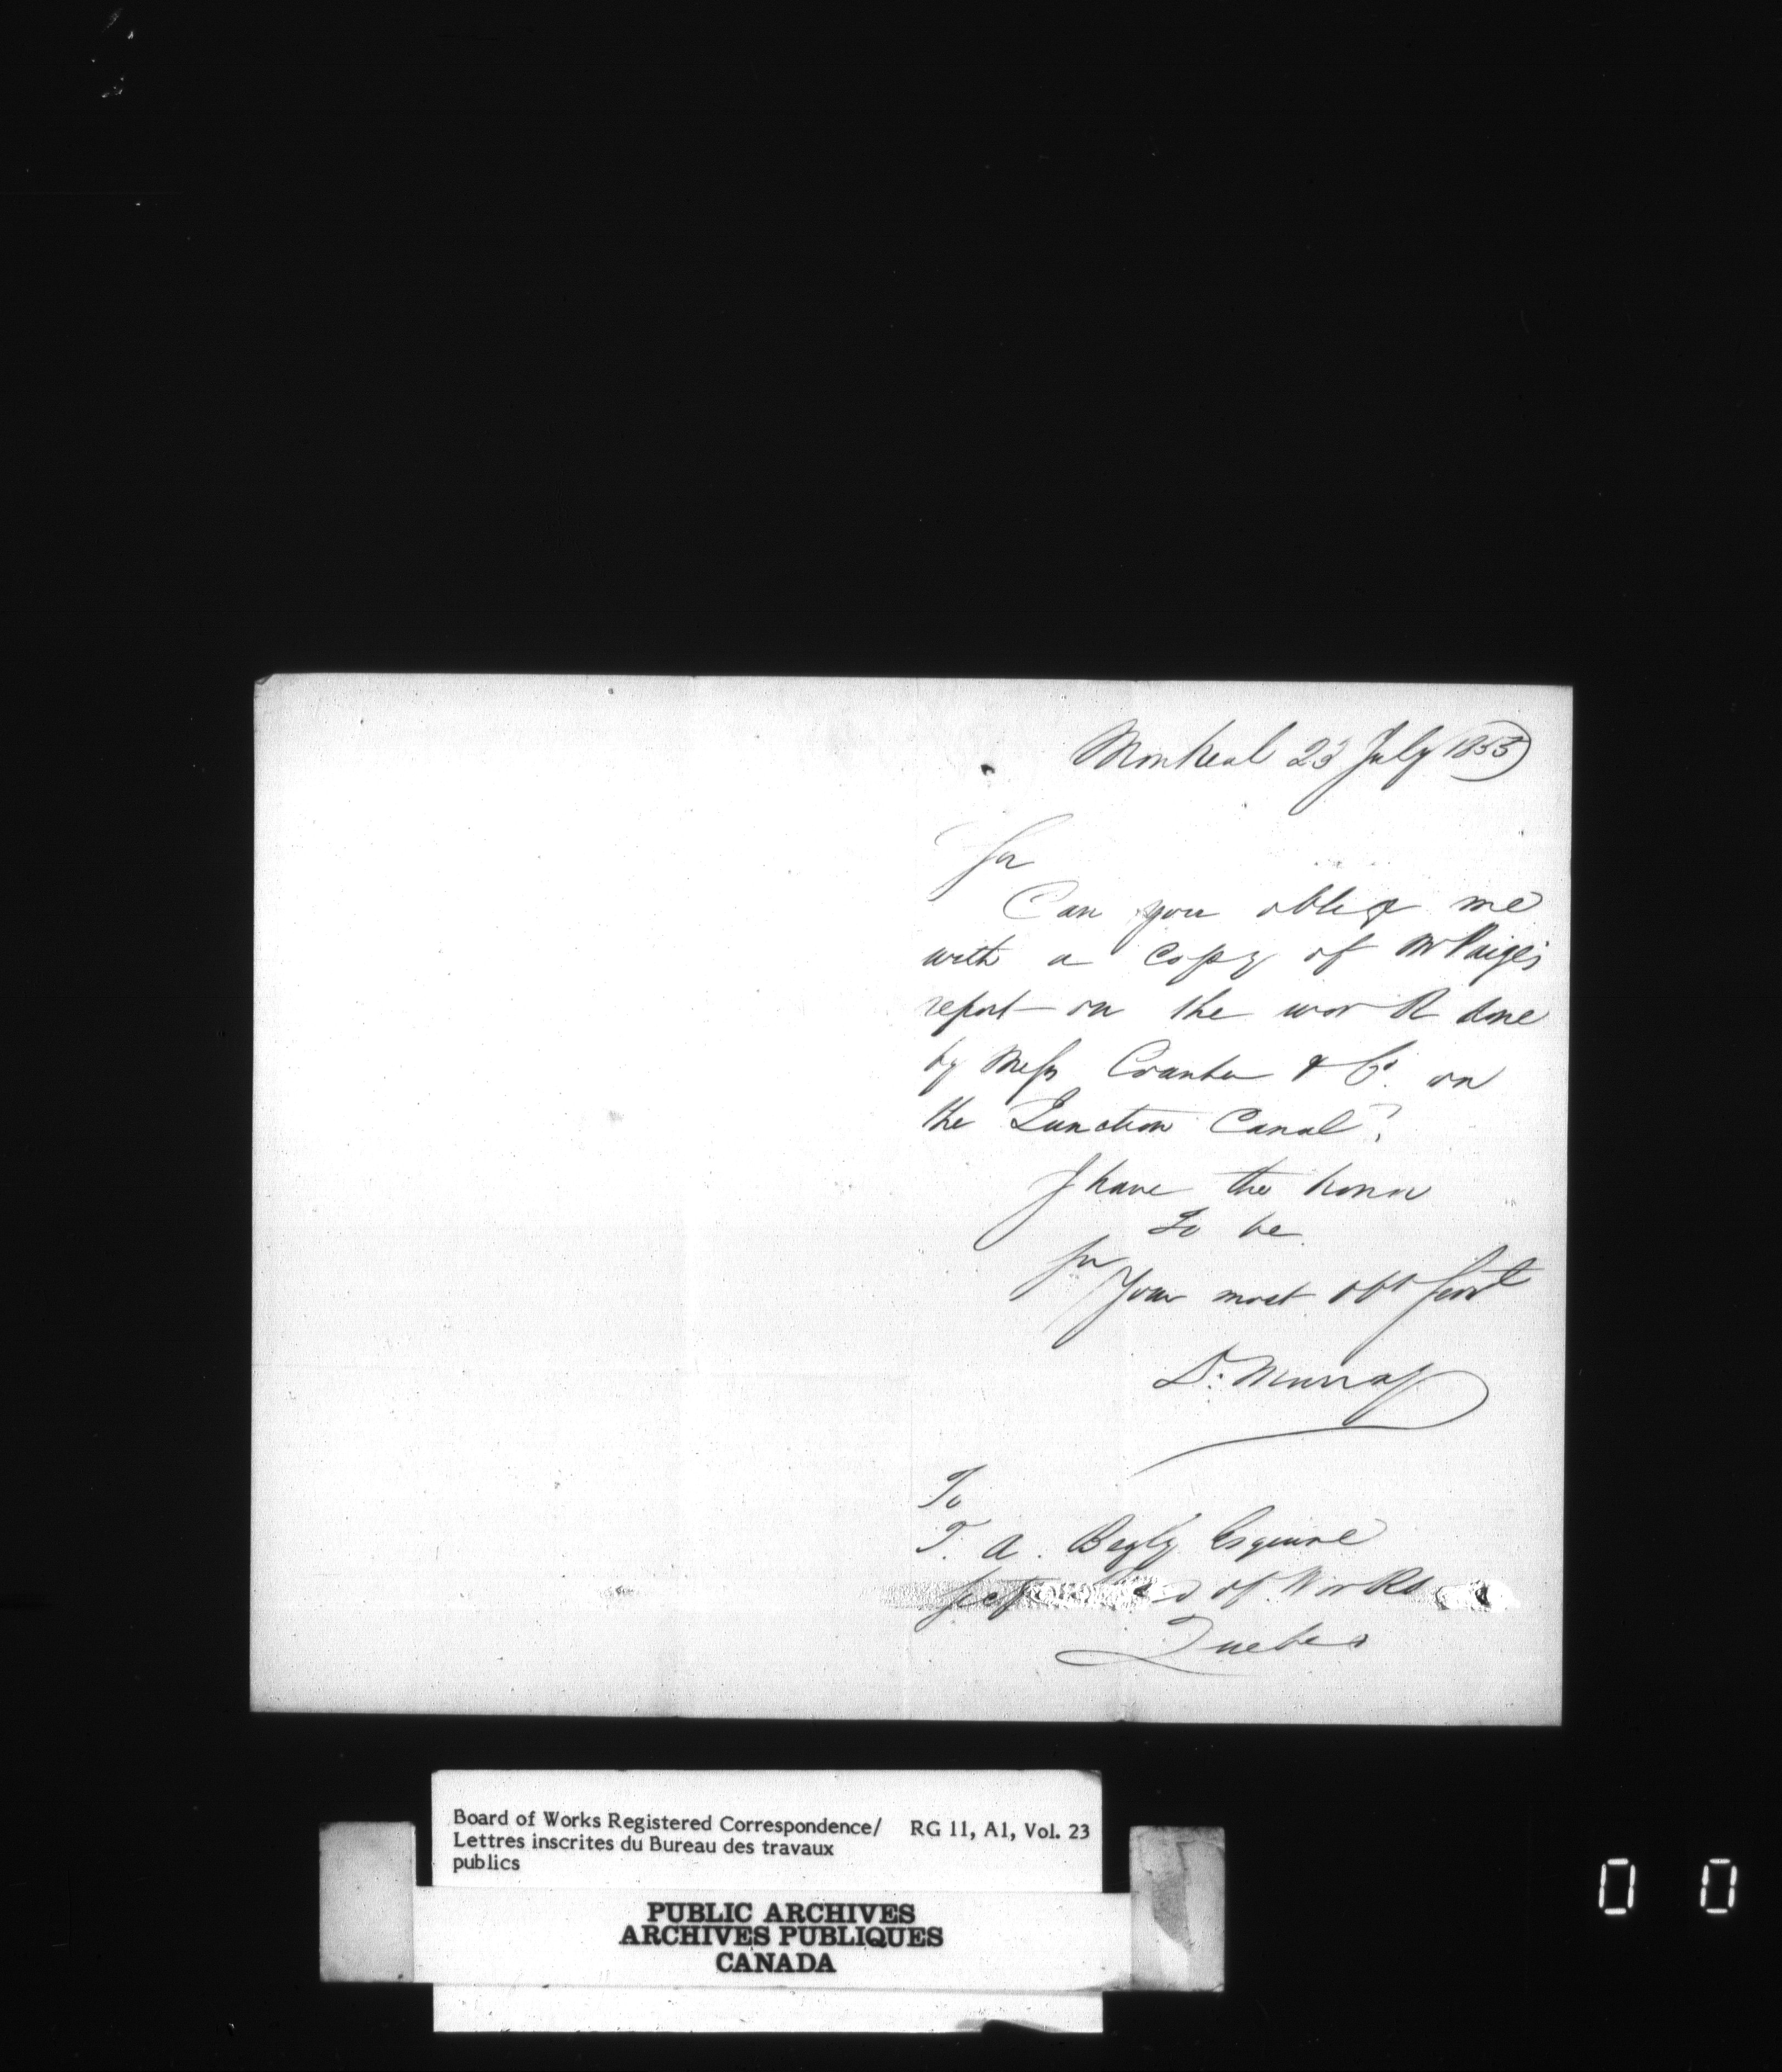 Montreal 23 July 1853
Sir
Can you oblige me
with a copy of Mr Paige's
report on the work done
by Messrs & Co. on
the Junction Canal?
I have the honor
to be
Sir
Your most obt Servt
D. Murray
To
T. A. Begly Esquire
Secy of Works
Quebec
Board of Works Registered Correspondence/ RG 11, A1, Vol. 23
Lettres inscrites du Bureau des travaux
publics
PUBLIC ARCHIVES
ARCHIVES PUBLIQUES
CANADA
0 0